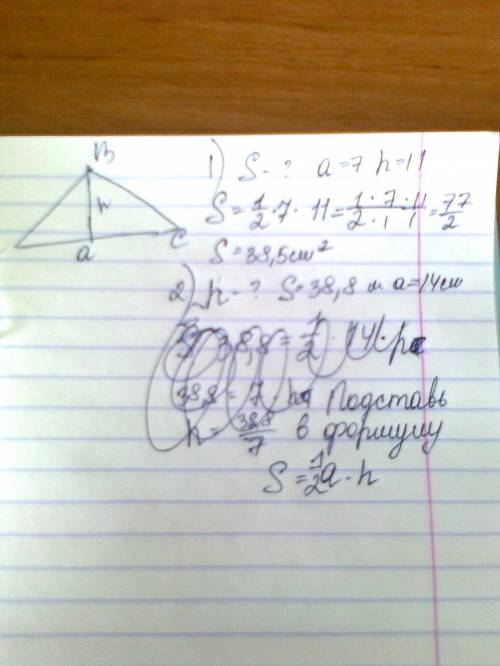 B
h
a
C
1) S - ? a=7 h=11
S = 1/2 · 7 · 11 = 1·7·11/2·1·1 = 77/2
S = 38,5 cm²
2) h - ? S=38,8 a=14cm
38,8 = 1/2 · 14 · h
38,8 = 7 · h Подставь
h = 38,8/7 в формулу
S = 1/2 a · h